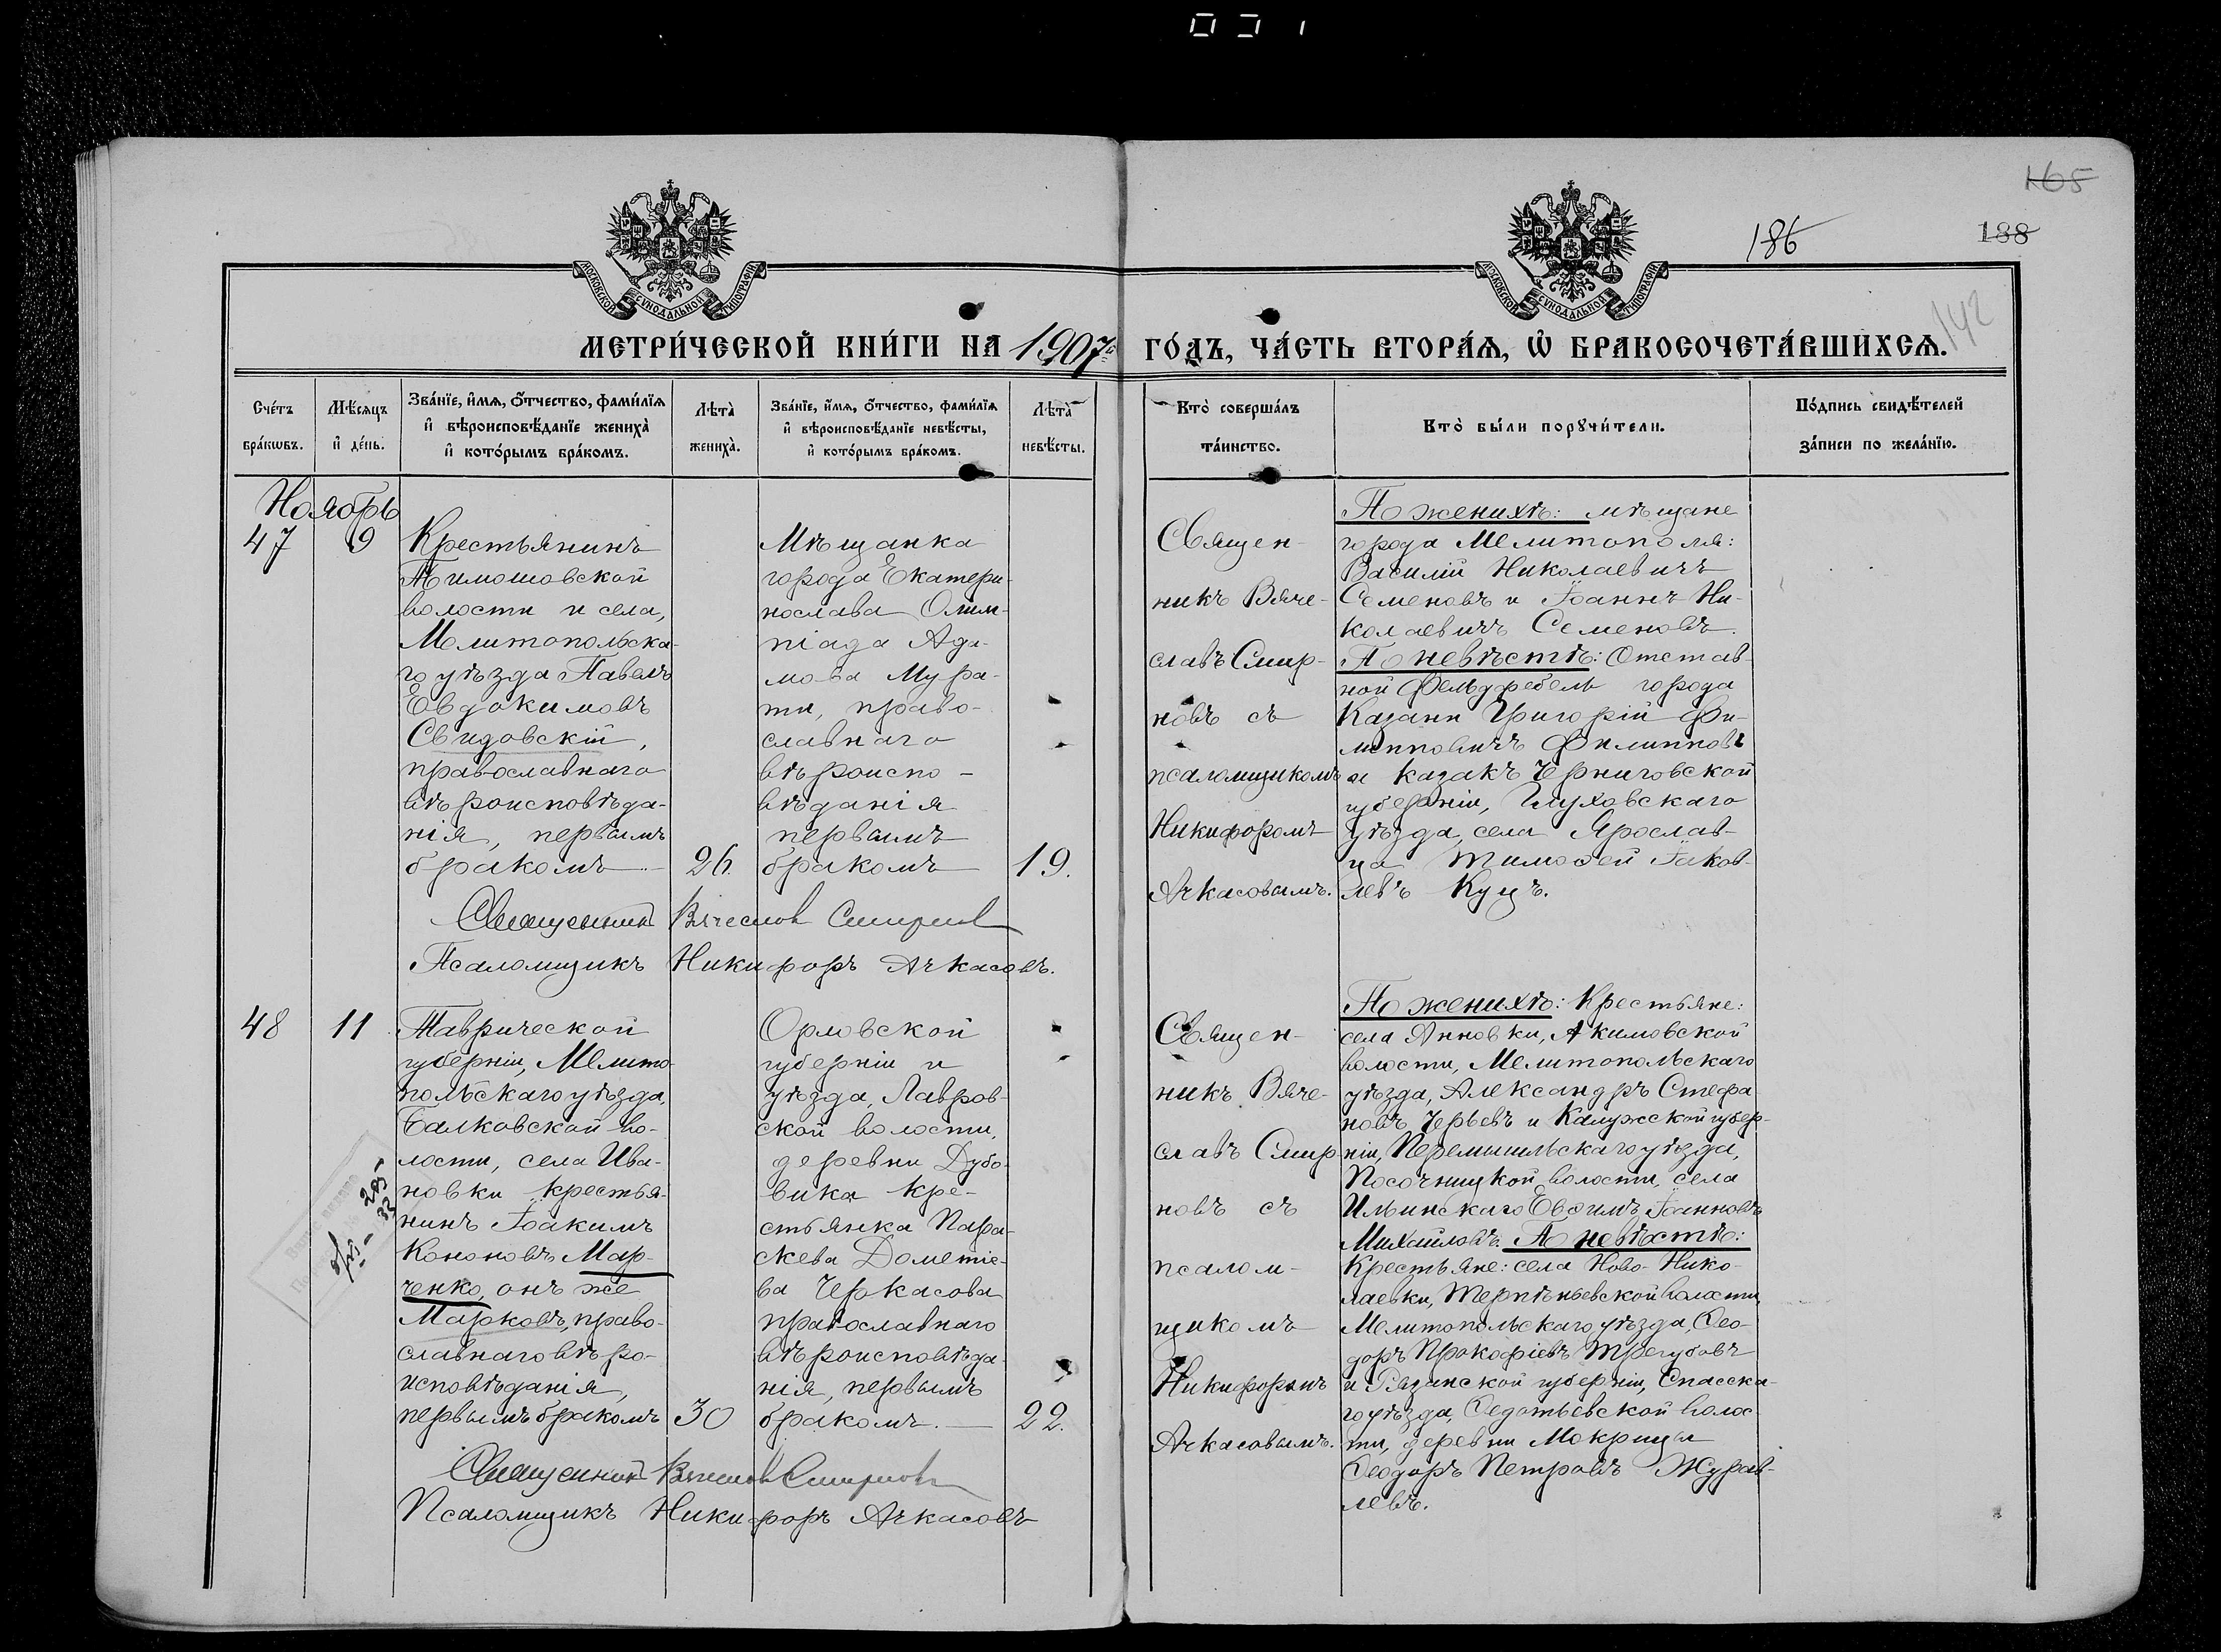 165
188
186
142
МОСКОВСКОЙ СѴНОДАЛЬНОЙ ТИПОГРАФІИ
МОСКОВСКОЙ СѴНОДАЛЬНОЙ ТИПОГРАФІИ
МЕТРИ́ЧЕСКОЙ КНИ́ГИ НА 1907й ГО́ДЪ, ЧА́СТЬ ВТОРА́Ѧ, Ѡ БРАКОСОЧЕТА́ВШИХСѦ.
Сче́тъ
бра́кѡвъ.
Мѣ́сяцъ
и҆ де́нь.
Зва́нїе, и҆́мѧ, ѻ҆́тчество, фами́лїѧ
и҆ вѣроисповѣ́данїе жениха̀
и҆ кото́рымъ бра́комъ.
Лѣта̀
жениха̀.
Зва́нїе, и҆́мѧ, ѻ҆́тчество, фами́лїѧ
и҆ вѣроисповѣ́данїе невѣ́сты,
и҆ кото́рымъ бра́комъ.
Лѣта̀
невѣ́сты.
Кто̀ соверша́лъ
та́инство.
Кто̀ бы́ли порꙋчи́тели.
По́дпись свидѣ́телей
за́писи по жела́нїю.
Ноябрь
47
9
Крестьянинъ
Тимошовской
волости и села,
Мелитопольска-
го уѣзда Павелъ
Евдокимовъ
Свидовскій,
православнаго
вѣроисповѣда-
нія, первымъ
бракомъ
26.
Мѣщанка
города Екатери-
нослава Олим-
піада Ада-
мова Мура-
ти, право-
славнаго
вѣроиспо-
вѣданія
первымъ
бракомъ
19.
Священ-
никъ Вяче-
славъ Смир-
новъ съ
псаломщикомъ
Никифоромъ
Ачкасовымъ.
По женихѣ: мѣщане
города Мелитополя:
Василій Николаевичъ
Семеновъ и Іоаннъ Ни-
колаевичъ Семеновъ.
По невѣстѣ: Отстав-
ной фельдфебель города
Казани Григорій Фи-
липповичъ Филипповъ
и казакъ Черниговской
губерніи, Глуховскаго
уѣзда, села Ярослав-
ца Тимоѳей Іаков-
левъ Куцъ.
Священникъ Вячеслав Смирнов
Псаломщикъ Никифоръ Ачкасовъ.
48
11
Таврической
губерніи, Мелито-
польскаго уѣзда,
Балковской во-
лости, села Ива-
новки крестья-
нинъ Іоакимъ
Кононовъ Мар-
ченко, онъ же
Марковъ, право-
славнаго вѣро-
исповѣданія,
первымъ бракомъ
30
Орловской
губерніи и
уѣзда, Лавров-
ской волости,
деревни Дубо-
вика кре-
стьянка Пара-
скева Дометіе-
ва Черкасова
православнаго
вѣроисповѣда-
нія, первымъ
бракомъ.
22.
Священ-
никъ Вяче-
славъ Смир-
новъ съ
псалом-
щикомъ
Никифоромъ
Ачкасовымъ.
По женихѣ: крестьяне:
села Анновки, Акимовской
волости, Мелитопольскаго
уѣзда, Александръ Стефа
новъ Черьевъ и Калужской губер-
ніи, Перемышльскаго уѣзда,
волости, села
Ильинскаго Евѳимъ Іоанновъ
Михайловъ. По невѣстѣ:
Крестьяне: села Ново-Нико-
лаевки, Терпѣньевской волости,
Мелитопольскаго уѣзда, Ѳео-
доръ Прокофіевъ Трегубовъ
и Рязанской губерніи, Спасска-
го уѣзда, Ѳедотьевской волос-
ти, деревни Мокрицы
Ѳеодоръ Петровъ Журав-
левъ.
Священникъ Вячеслав Смирновъ
Псаломщикъ Никифоръ Ачкасовъ